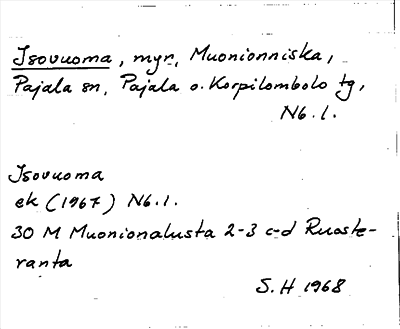 Isovuoma, myr, Muonionniska,
Pajala sn, Pajala o. Korpilombolo tg,
Nb. l.
Isovuoma
ek (1967) Nb. l.
30 M Muonionalusta 2-3 c-d Ruoste-
ranta
S. H 1968